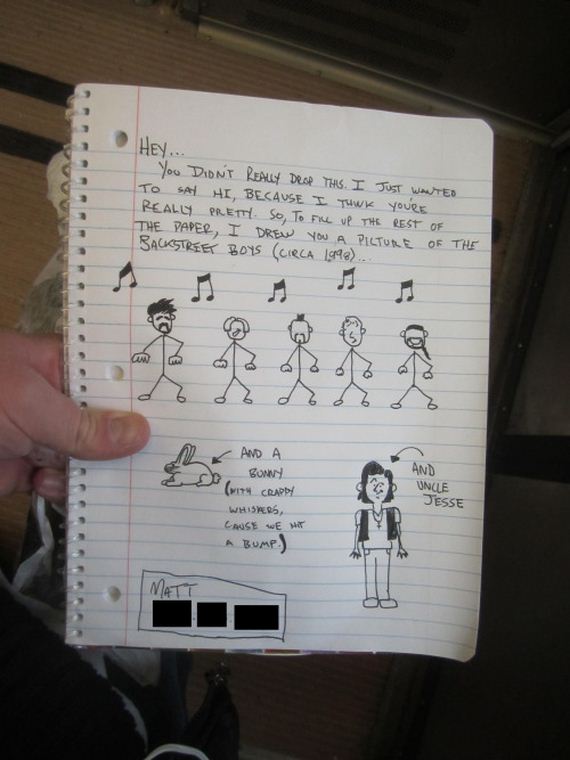 HEY...
YOU DIDN'T REALLY DROP THIS. I JUST WANTED
TO SAY HI, BECAUSE I THINK YOU'RE
REALLY PRETTY. SO, TO FILL UP THE REST OF
THE PAPER, I DREW YOU A PICTURE OF THE
BACKSTREET BOYS (CIRCA 1998)...
AND A
BUNNY
(WITH CRAPPY
WHISKERS,
CAUSE WE HIT
A BUMP.)
AND
UNCLE
JESSE
MATT